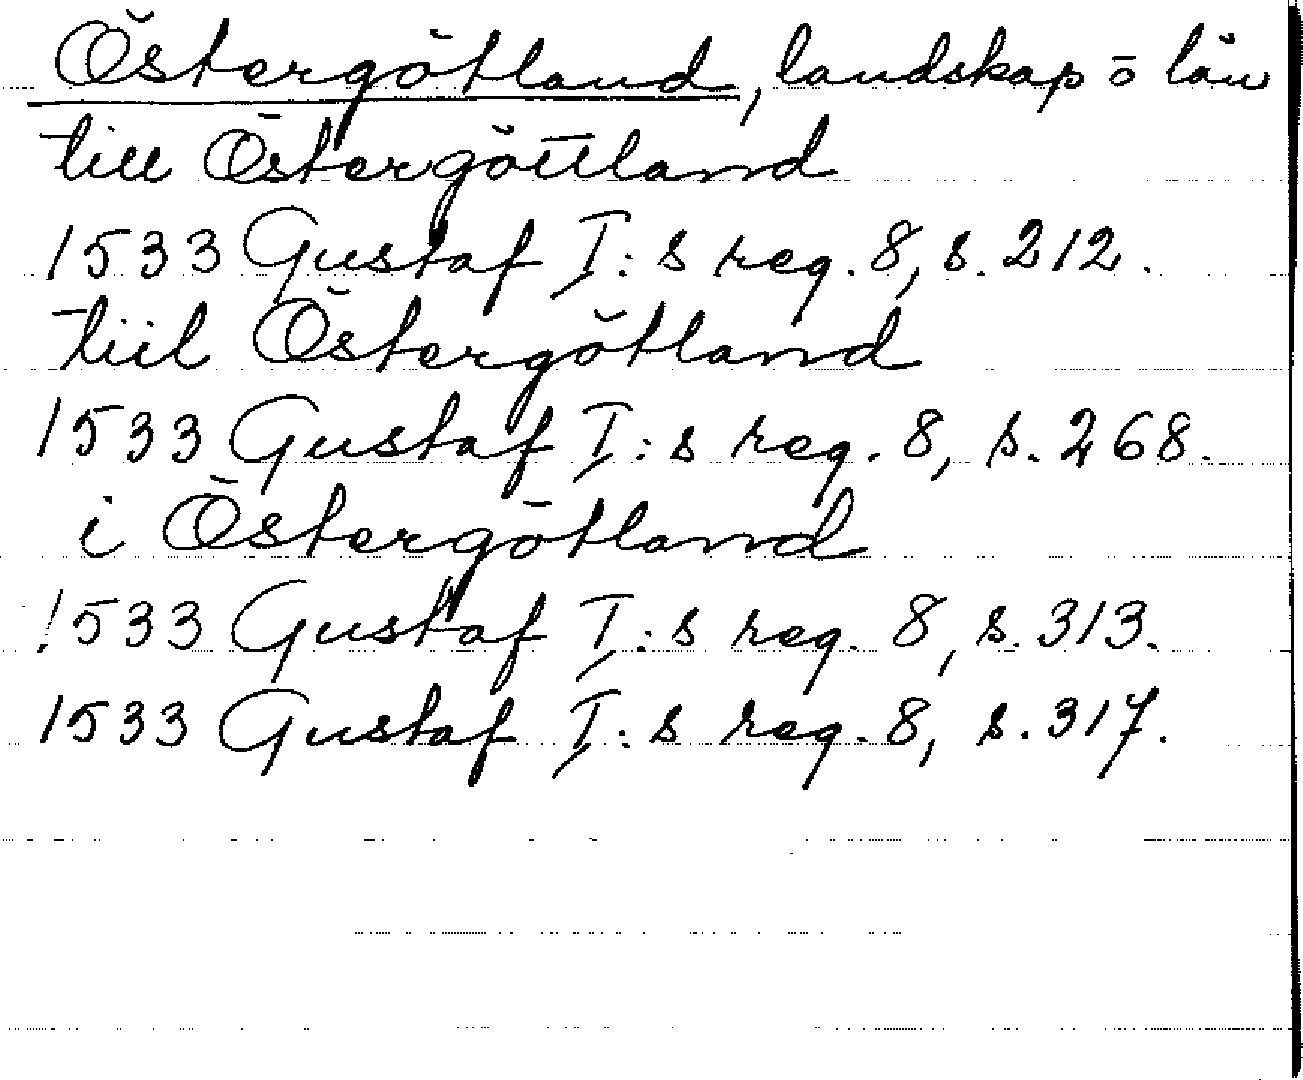 Östergötland, landskap o län
till Östergöttland
1533 Gustaf I:s reg. 8, s. 212.
tiil Östergötland
1533 Gustaf I:s reg. 8, s. 268.
i Östergötland
1533 Gustaf I:s reg. 8, s. 313.
1533 Gustaf I:s reg. 8, s. 317.